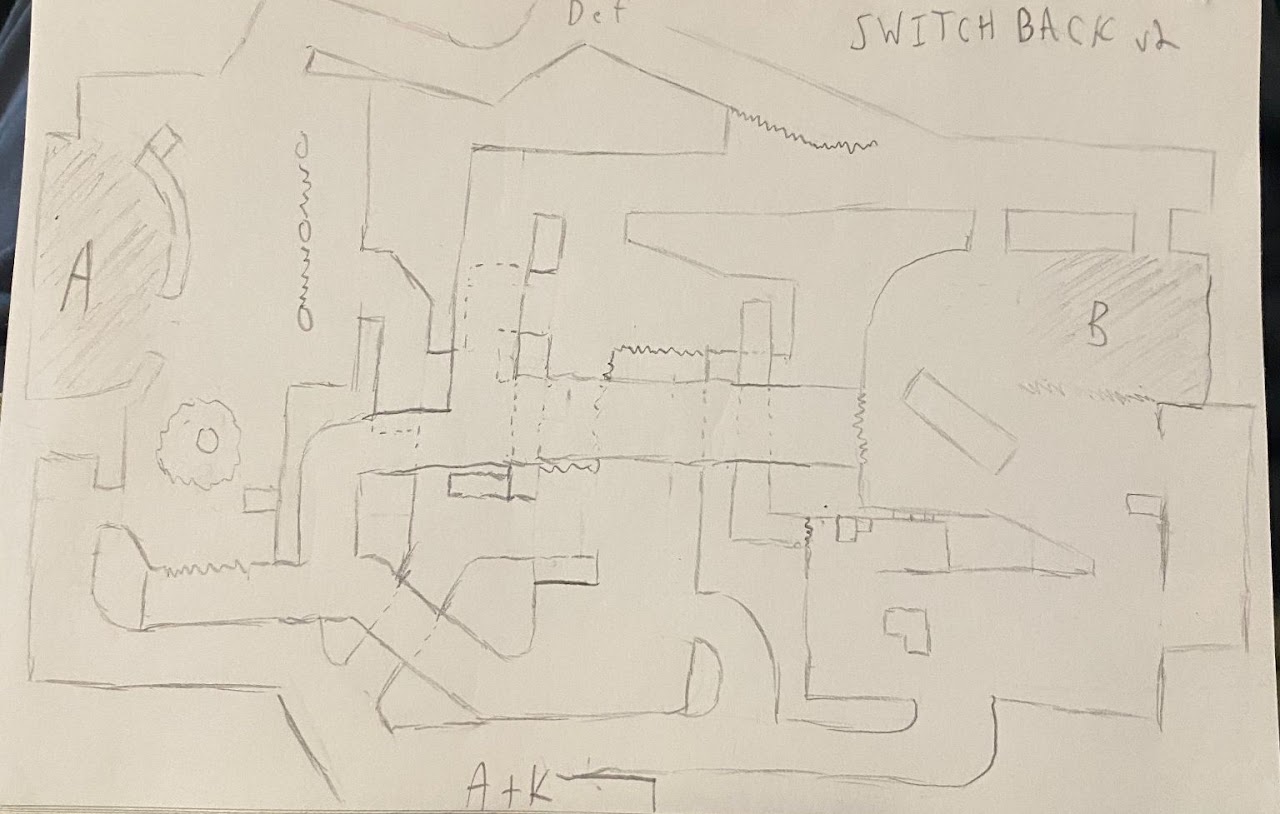 Def
SWITCH BACK v2
A
B
A+K